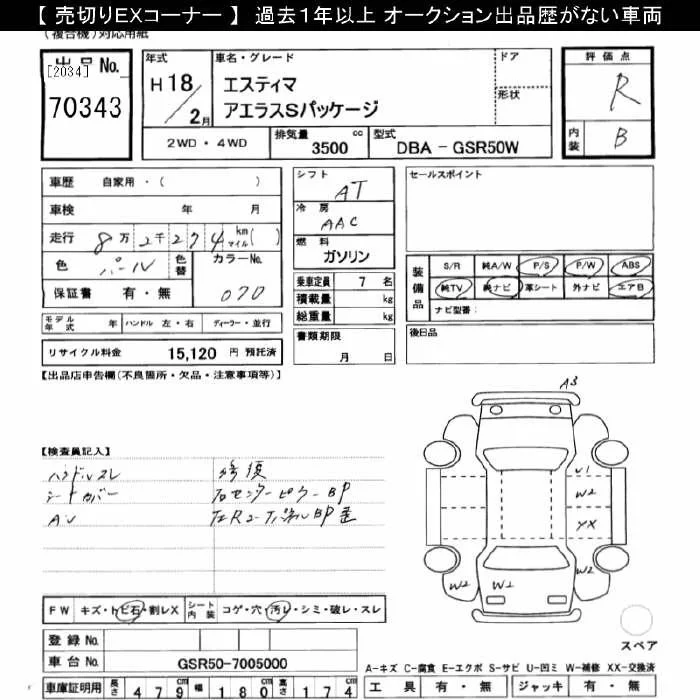 【 売切りEXコーナー 】 過去1年以上 オークション出品歴がない車両
(複合機)対応用紙
出品No.
[2034]
70343
年式
H18/2月
車名・グレード
エスティマ
アエラスSパッケージ
ドア
形状
評価点
R
内装
B
2WD・4WD
排気量
3500 cc
型式
DBA - GSR50W
車歴 自家用・( )
車検 年 月
走行 8万2千274 km マイル( )
色 パール
色替
カラーNo.
070
保証書 有・無
シフト
AT
冷房
AAC
燃料
ガソリン
乗車定員 7 名
積載量 kg
総重量 kg
書類期限
月 日
セールスポイント
装備品
S/R 純A/W P/S P/W ABS
純TV 純ナビ 革シート 外ナビ エアB
ナビ型番:
後日品
モデル年式 年 ハンドル 左・右 ディーラー・並行
リサイクル料金 15,120 円 預託済
【出品店申告欄(不良箇所・欠品・注意事項等)】
【検査員記入】
ハンドルスレ
シートカバー
修復
右センターピラーBP
A3
U1
W2
YX
W2
W2
W1
FW キズ・トビ石・割レX シート内装 コゲ・穴・汚レ・シミ・破レ・スレ
登録No.
車台No. GSR50-7005000
車庫証明用 長さ 479 幅 180 高さ 174
スペア
A-キズ C-腐食 E-エクボ S-サビ U-凹ミ W-補修 XX-交換済
工具 有・無 ジャッキ 有・無